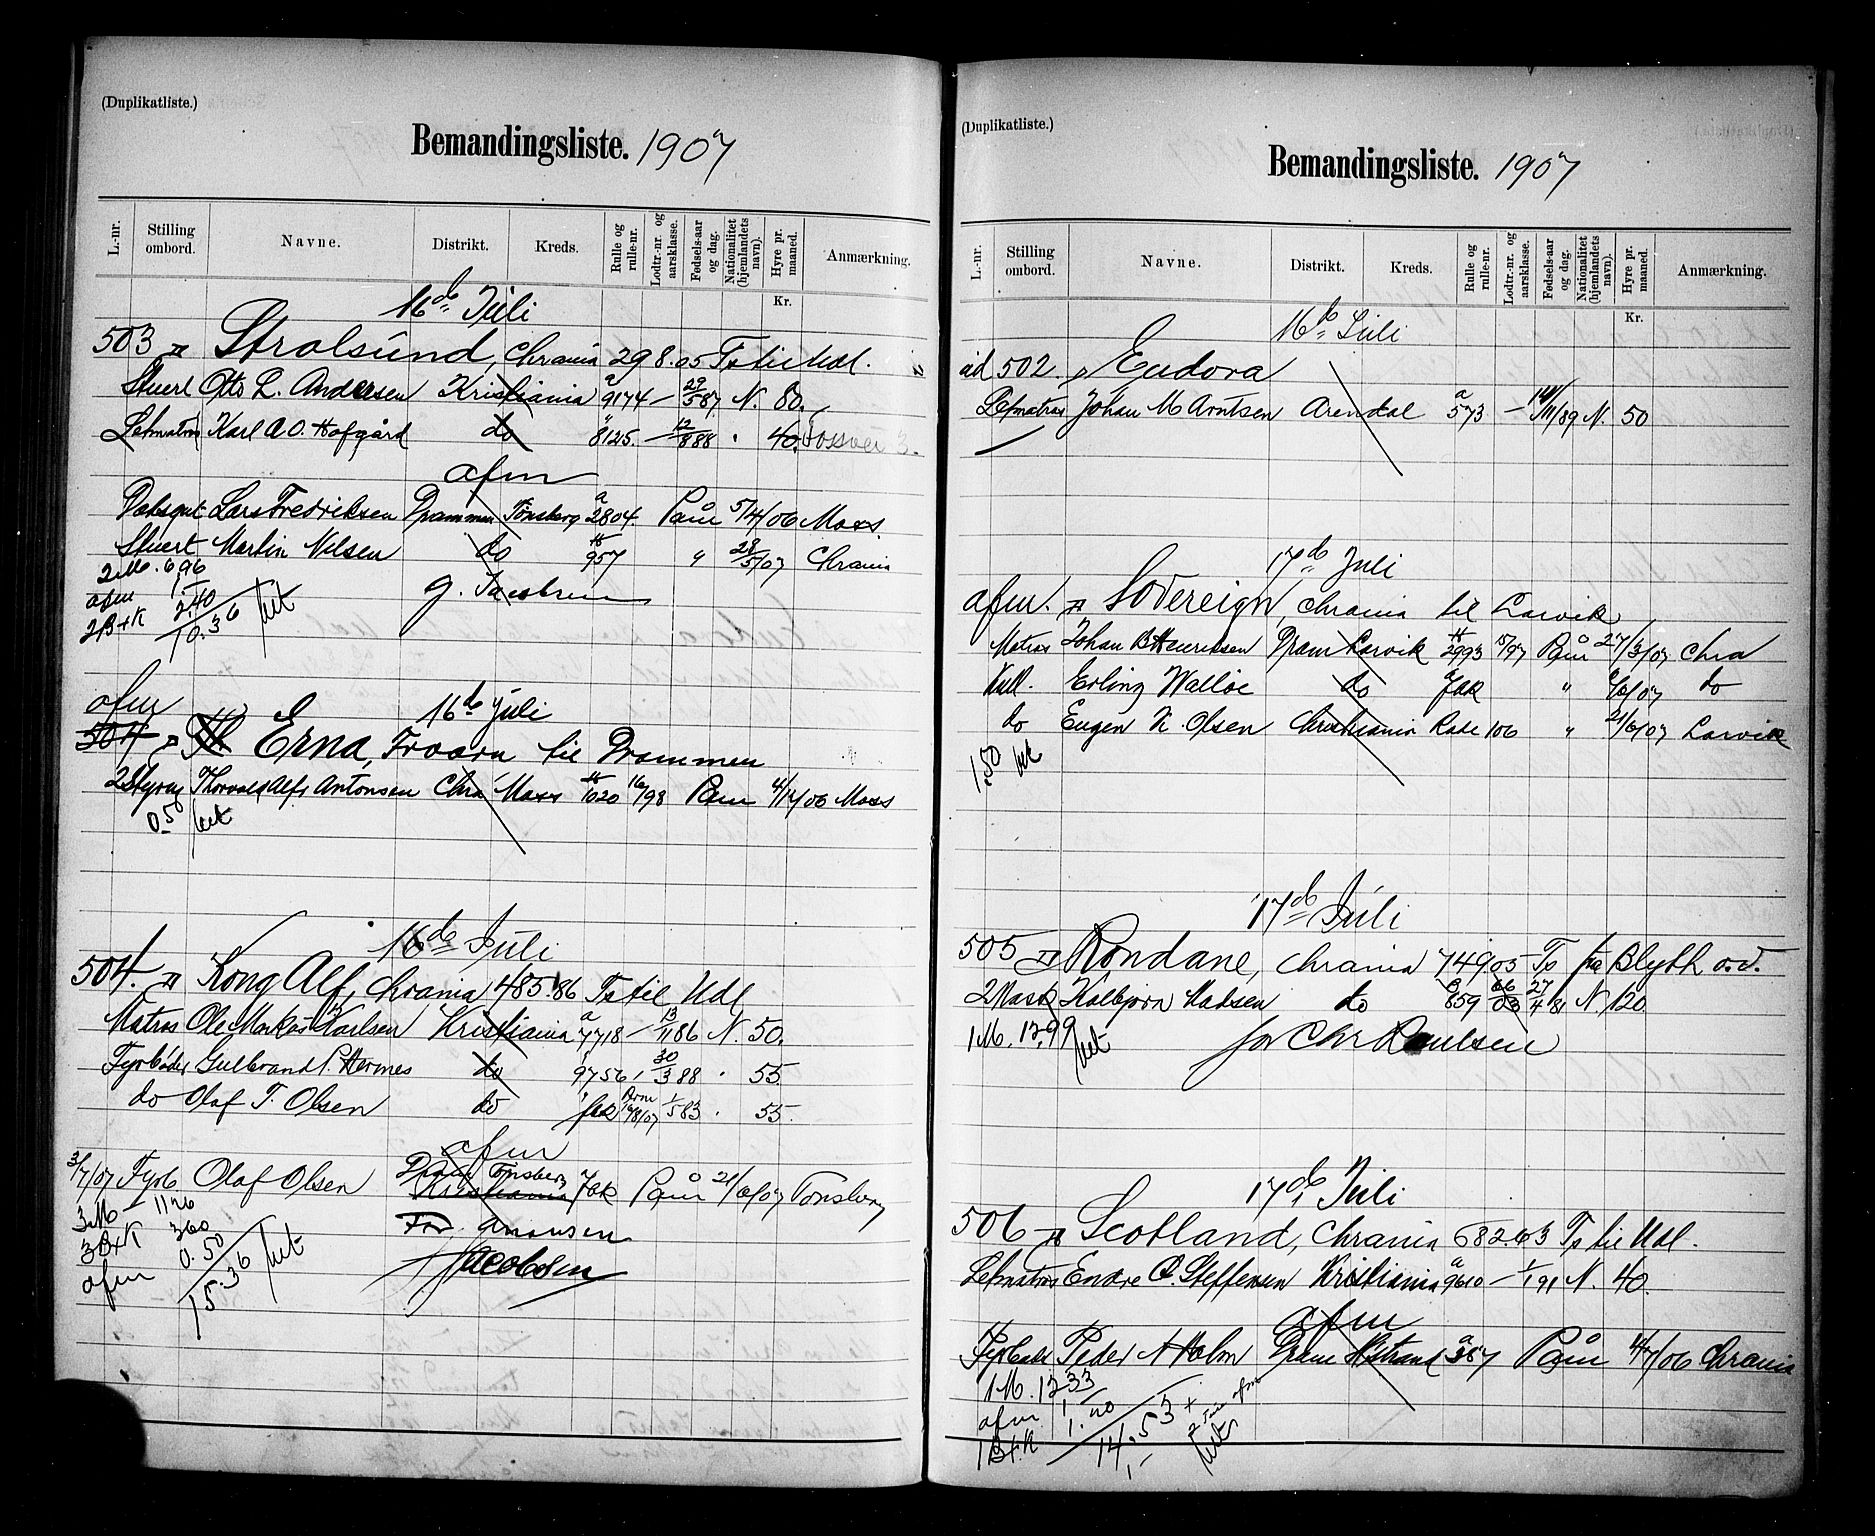 (Duplikatliste.)
Bemandingsliste. 1907
L.-nr. Stilling ombord. Navne. Distrikt. Kreds. Rulle og rulle-nr. Lodtr.-nr. og aarsklasse. Fødsels-aar og dag. Nationalitet (hjemlandets navn). Hyre pr. maaned. Anmærkning.
Kr.
16de Juli
503 Stralsund, Chrania 298.05 Ts til Udl.
Stuert Otto L. Andersen Kristiania a 9174 — 29/5 87 N. 80.
Letmatros Karl A O. Hofgård do " 8125. — 12/8 88 " 40.
afm
Lars Fredriksen Drammen Tønsberg a 2804. Påm 5/4/06 Moss.
Stuert Martin Nilsen do 957 " 28/5/07 Chrania
2M. 6,96
afm 1,–
2B+K 2.40
10.36
J. Jacobsen
afm
16de Juli
504 Erna, Fraaru til Drammen
2Styrm Thorvald Alfr Antonsen Chra Moss 1020 16/98 Påm 4/14/06 Moss
0.50
16de Juli
504. Kong Alf, Chrania 485.86 Ts til Udl
Matros Ole Markus Karlsen Kristiania a 7718 — 13/11 86 N. 50.
Fyrbøder Gulbrand P. Hermes do 9756 30/3 88 " 55
do Olaf T. Olsen do 1/5 83 " 55.
afm
3/7/07 Fyrb Olaf Olsen Dram Tønsberg Kristiania Påm 21/6/07 Tønsberg
3M – 11 26
3B+K 360
afm 0.50
15.36
For. Amonsen
Jacobsen
(Duplikatliste.)
Bemandingsliste. 1907
L.-nr. Stilling ombord. Navne. Distrikt. Kreds. Rulle og rulle-nr. Lodtr.-nr. og aarsklasse. Fødsels-aar og dag. Nationalitet (hjemlandets navn). Hyre pr. maaned. Anmærkning.
Kr.
16de Juli
ad 502. Eudora
Letmatros Johan M Arntsen Arendal a 573 — 14/11/89 N. 50
17de Juli
afm. Sovereign, Chrania til Larvik
Matros Johan B Henriksen Dram Larvik 2993 15/97 Påm 27/3/07 Chra
Kull. Erling Walløe do " do
do Eugen N. Olsen Christiania 106 " 21/6/07 Larvik
1.50
17de Juli
505 Rondane, Chrania 749.05 Ts fra Blyth o.d.
2Mask Kolbjørn Madsen do 859 27/4 81 N. 120
1M. 13.99
for Chr Paulsen
17de Juli
506 Scotland, Chrania 682.63 Ts til Udl.
Letmatros Endre O. Steffensen Kristiania a 9610 — 1/1 91 N. 40.
afm
Fyrbøder Peder A Holm Dram Hstrand a 387 Påm 4/7/06 Chrania
1M. 12 33
afm 1,–
1B+K 1.20
14.53